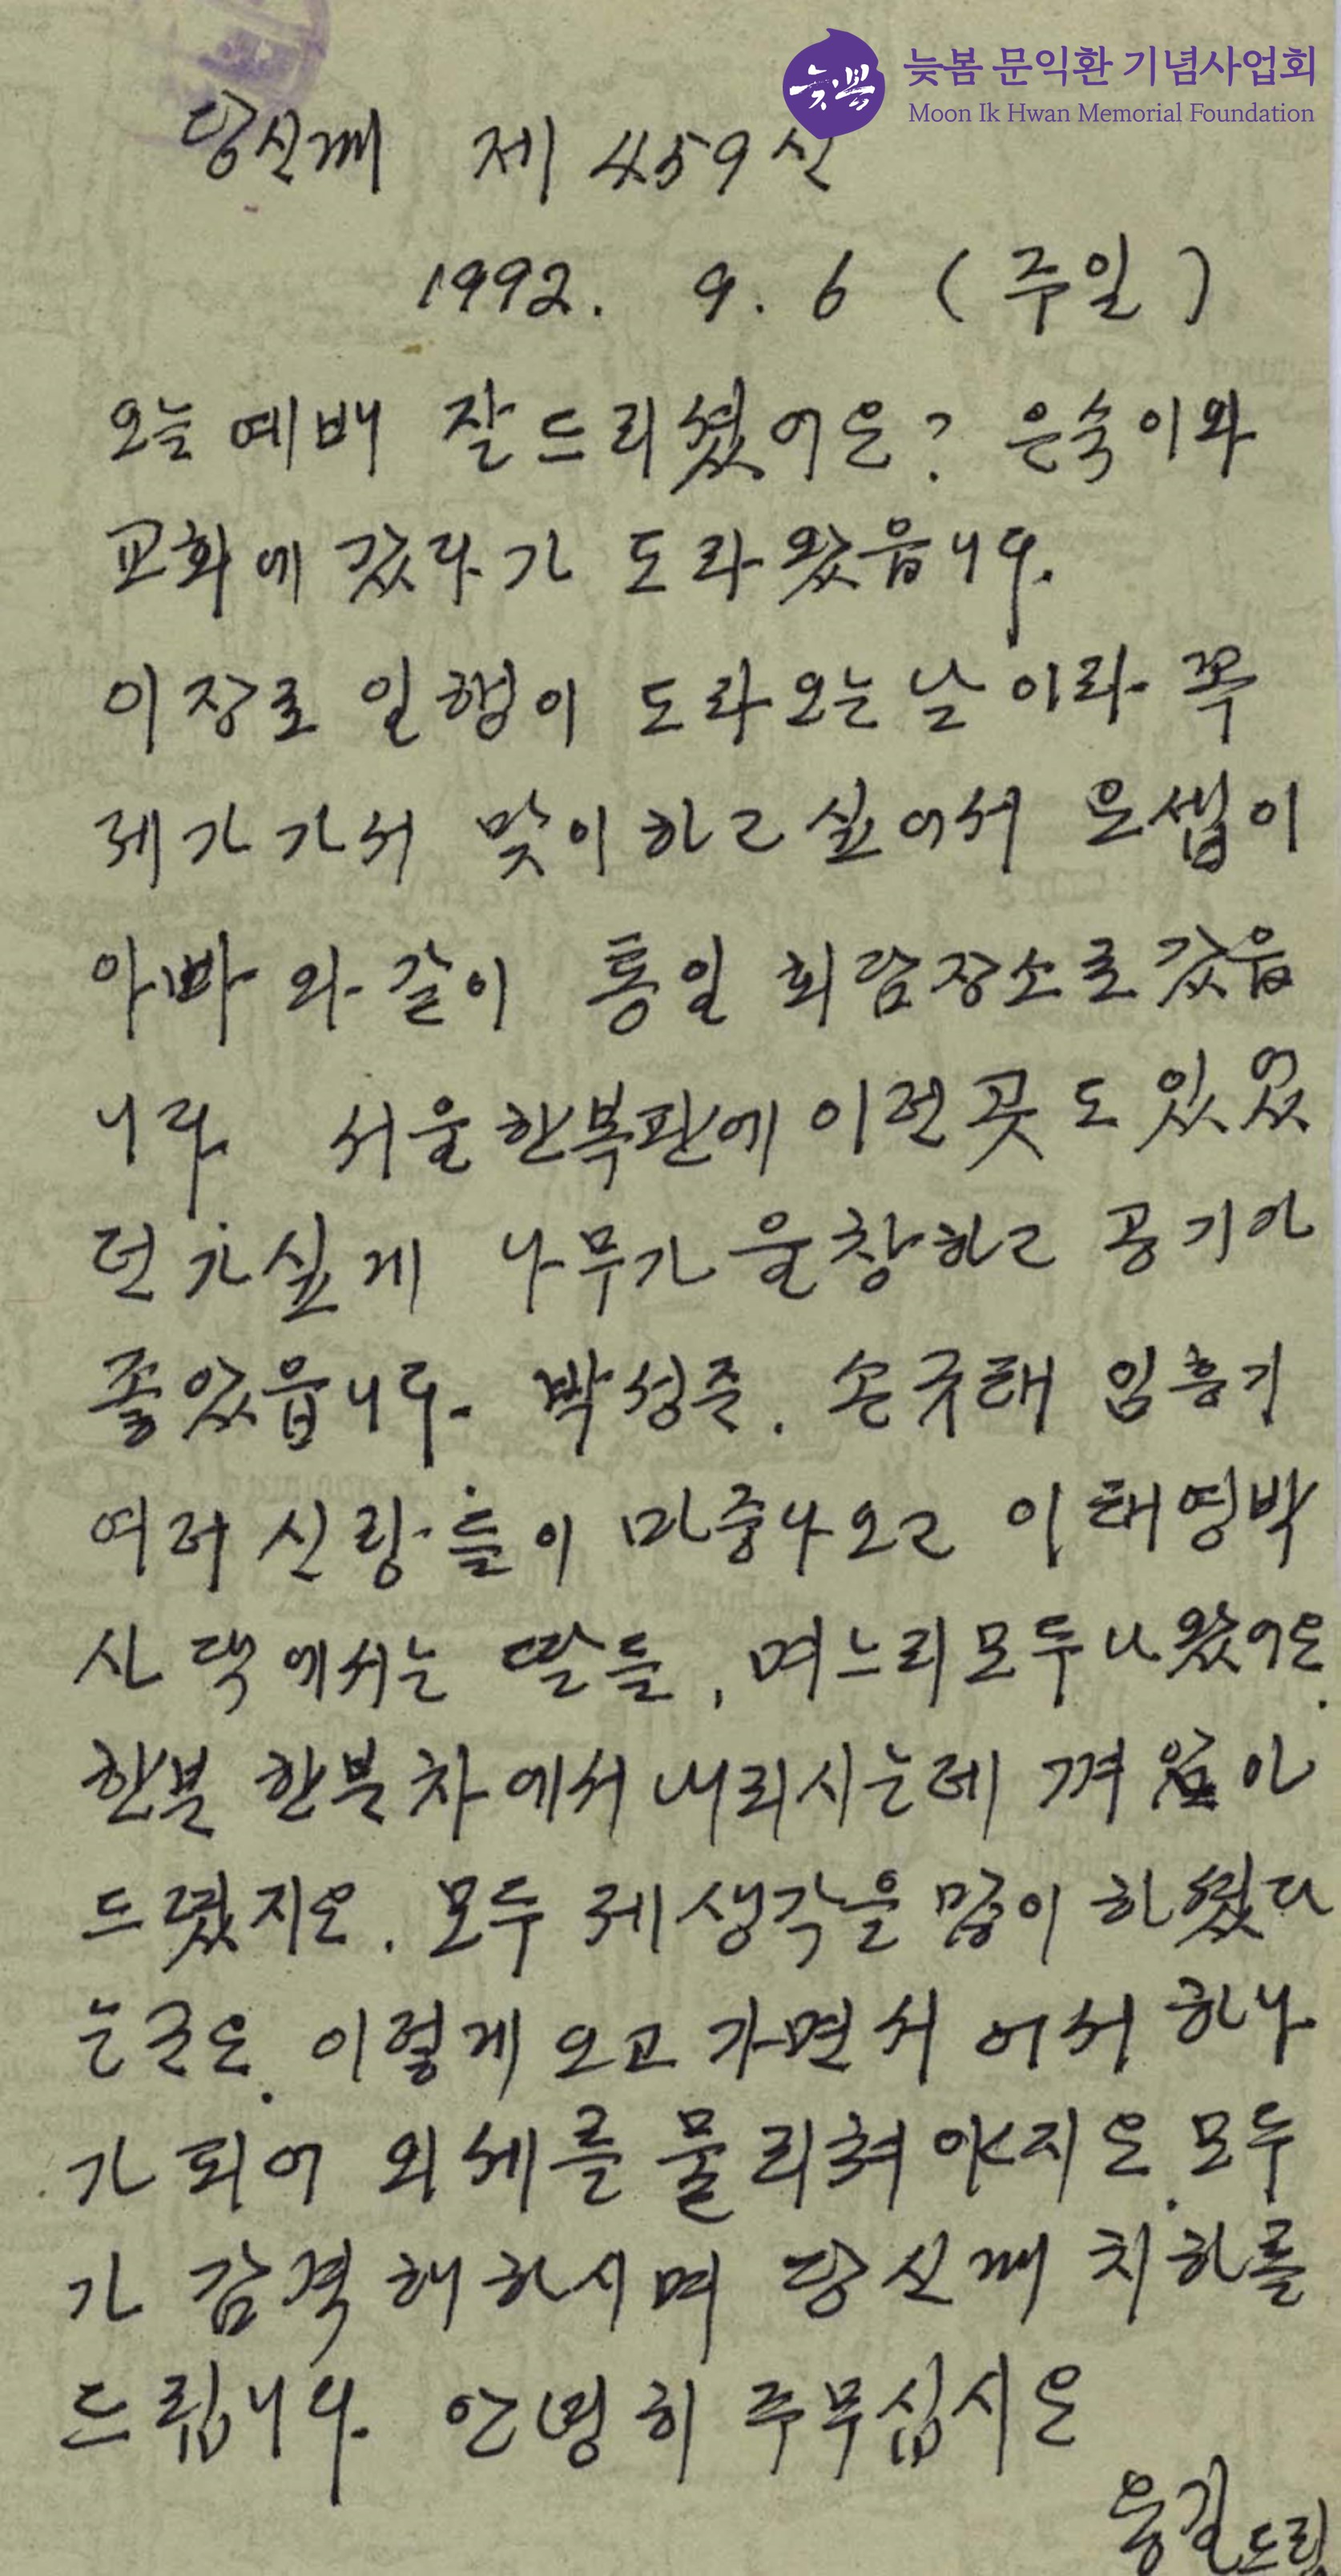 늦봄 문익환 기념사업회
Moon Ik Hwan Memorial Foundation
당신께 제459신
1992. 9. 6 (주일)
오늘 예배 잘 드리셨어요? 은숙이와
교회에 갔다가 도라왔읍니다.
이장로 일행이 도라오는 날이라 꼭
제가 가서 맞이하고 싶어서 문셉이
아빠와 같이 통일 회담장소로 갔읍
니다 서울 한복판에 이런 곳도 있었
던가 싶게 나무가 울창하고 공기가
좋았읍니다. 박성준. 손규태 임흥기
여러 신랑들이 마중나오고 이태영박
사 댁에서는 딸들, 며느리 모두 나왔어요.
한분 한분 차에서 내리시는데 껴안아
드렸지요. 모두 제 생각을 많이 하셨다
는군요. 이렇게 오고 가면서 어서 하나
가 되어 외세를 물리쳐야지요. 모두
가 감격해 하시며 당신께 치하를
드립니다. 안녕히 주무십시요
용길 드림